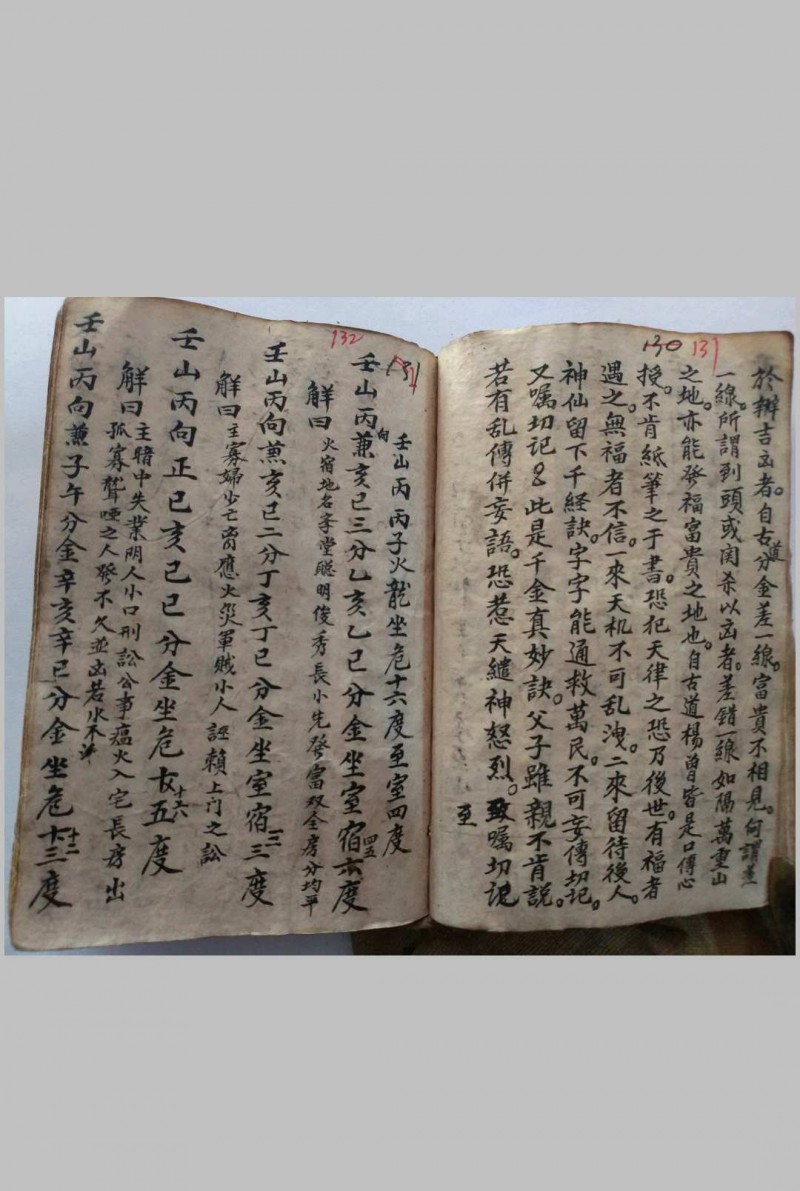 130 131
於辨吉凶者。自古道分金差一線。富貴不相見。何謂差
一線。所謂到頭或関杀以凶者。差錯一線如隔萬重山
之地。亦能發福富貴之地也。自古道楊曾皆是口傳心
授。不肯紙筆之于書。恐犯天律之恐乃後世。有福者
遇之。無福者不信。一來天机不可乱洩。二來留待後人。
神仙留下千経訣。字字能通救萬民。不可妄傳切記。
又嘱切記 此是千金真妙訣。父子雖親不肯説。
若有乱傳併妄語。恐惹天譴神怒烈。致嘱切記
至
131
132
壬山丙丙子火龍坐危十六度至室四度
壬山丙向兼亥巳三分乙亥乙巳分金坐室宿六度
四五
解曰 火宿地名字堂聪明俊秀長小先發富双全房分均平
壬山丙向兼亥巳二分丁亥丁巳分金坐室宿三度
三
解曰 主寡婦少亡 應火災軍賊小人誣賴上门之訟
壬山丙向正己亥己巳分金坐危五度
十六
解曰 主暗中失業阴人小口刑訟公事瘟火入宅長房出
孤寡聾啞之人發不久並凶若水不
壬山丙向兼子午分金辛亥辛巳分金坐危十三度
十二